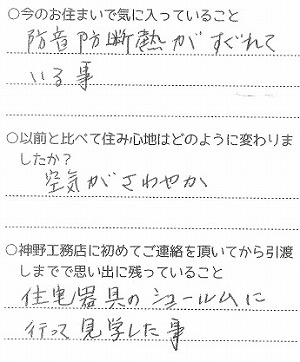 ○今のお住まいで気に入っていること
防音防断熱がすぐれて
いる事
○以前と比べて住み心地はどのように変わりま
したか？
空気がさわやか
○神野工務店に初めてご連絡を頂いてから引渡
しまでで思い出に残っていること
住宅器具のシュールムに
行って見学した事